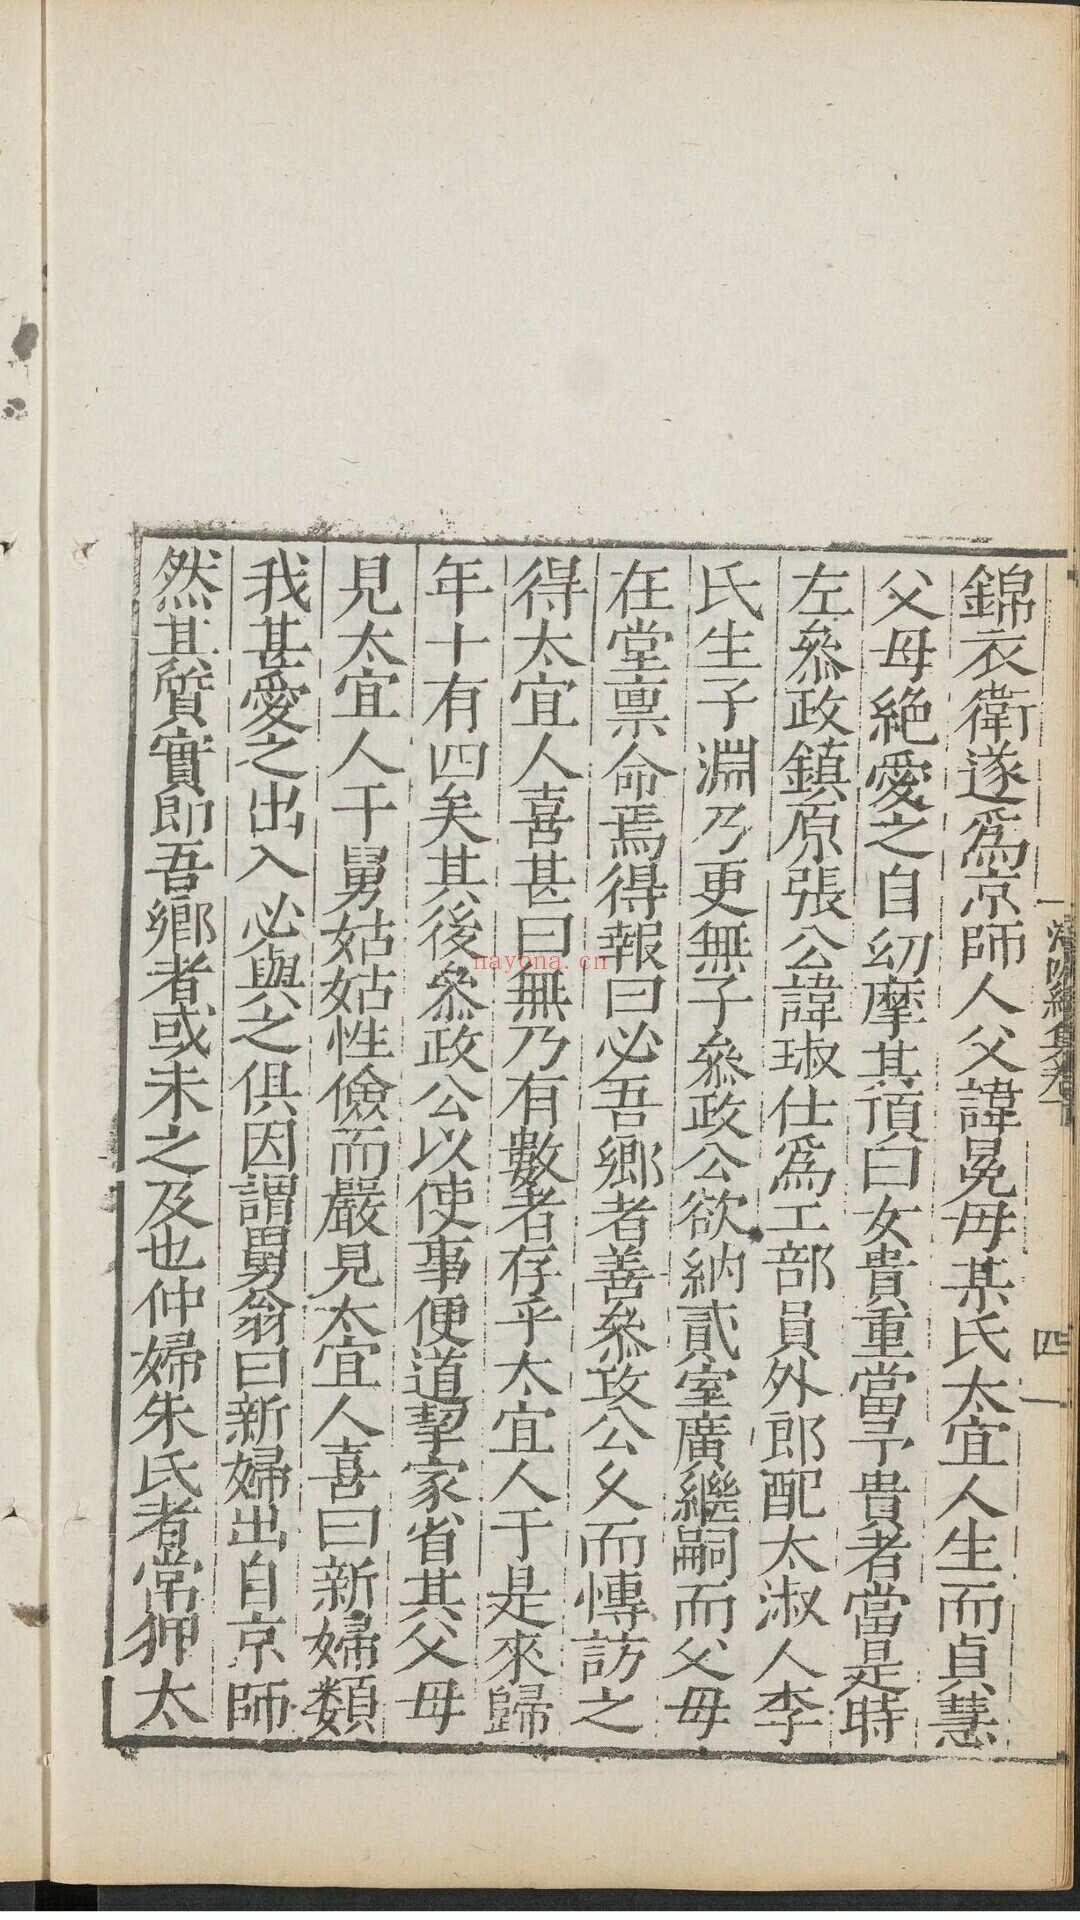 錦衣衛遂爲京師人父諱冕母某氏太宜人生而貞慧
父母絶愛之自幼摩其頂曰女貴重當予貴者當是時
左叅政鎮原張公諱琡仕爲工部員外郎配太淑人李
氏生子淵乃更無子叅政公欲納貳室廣繼嗣而父母
在堂禀命焉得報曰必吾鄉者善叅政公乆而慱訪之
得太宜人喜甚曰無乃有數者存乎太宜人于是來歸
年十有四矣其後叅政公以使事便道挈家省其父母
見太宜人于舅姑姑性儉而嚴見太宜人喜曰新婦類
我甚愛之出入必與之俱因謂舅翁曰新婦出自京師
然其質實即吾鄉者或未之及也仲婦朱氏者常狎太
四
nayona.cn